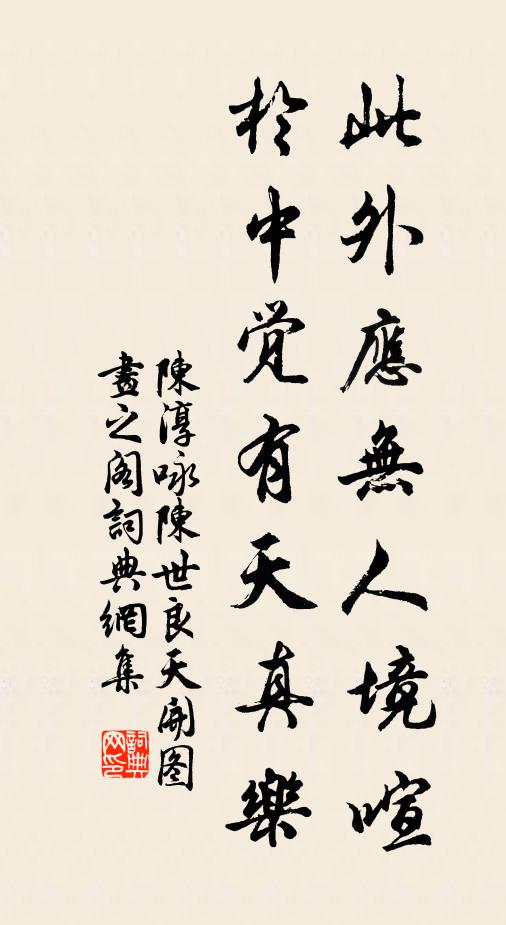 此外應無人境喧
於中覺有天真樂
陳淳咏陳世良天開图
畫之阁詞典網集
詞典网印